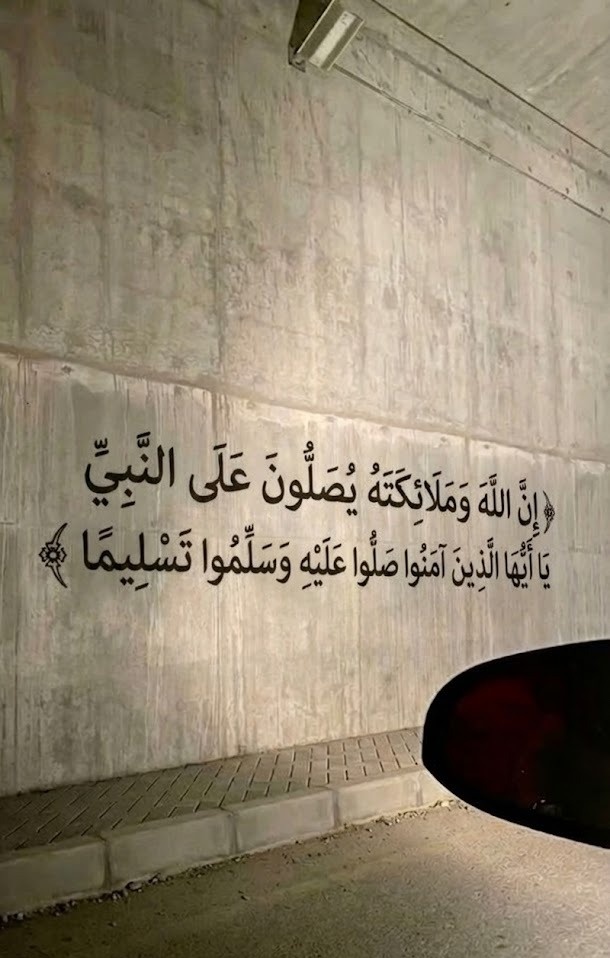 ﴿إِنَّ اللَّهَ وَمَلَائِكَتَهُ يُصَلُّونَ عَلَى النَّبِيِّ
يَا أَيُّهَا الَّذِينَ آمَنُوا صَلُّوا عَلَيْهِ وَسَلِّمُوا تَسْلِيمًا﴾